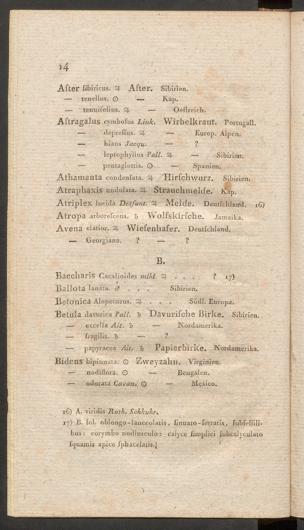 14
After sibiricus. ♃ After. Sibirien.
— tenellus. ☉ — Kap.
— tenuifolius. ♃ — Oestreich.
Astragalus cymbosus Link. Wirbelkraut. Portugall.
— depressus. ♃ — Europ. Alpen.
— hians Jacqu. — ?
— leptophyllus Pall. ♃ — Sibirien.
— pentaglottis. ☉ — Spanien.
Athamanta condensata. ♃ Hirschwurz. Sibirien.
Atraphaxis undulata. ♄ Strauchmelde. Kap.
Atriplex lucida Desfont. ♃ Melde. Deutschland. 16)
Atropa arborescens. ♄ Wolfskirsche. Jamaika.
Avena elatior. ♃ Wiesenhafer. Deutschland.
— Georgiana. ? — ?
B.
Baccharis Cacalioides mihi. ♃ . . . . ? 17)
Ballota lanata. ♂ . . . Sibirien.
Betonica Alopecurus. ♃ . . . Südl. Europa.
Betula daurica Pall. ♄ Davurische Birke. Sibirien.
— excelsa Ait. ♄ — Nordamerika.
— fragilis. ♄ — ?
— papyracea Ait. ♄ Papierbirke. Nordamerika.
Bidens bipinnata. ☉ Zweyzahn. Virginien.
— nodiflora. ☉ — Bengalen.
— odorata Cavan. ☉ — Mexico.
16) A. viridis Roth. Schkuhr.
17) B. fol. oblongo-lanceolatis, sinuato-serratis, subsessili-
bus: corymbo nudiusculo: calyce simplici subcalyculato
squamis apice sphacelatis.